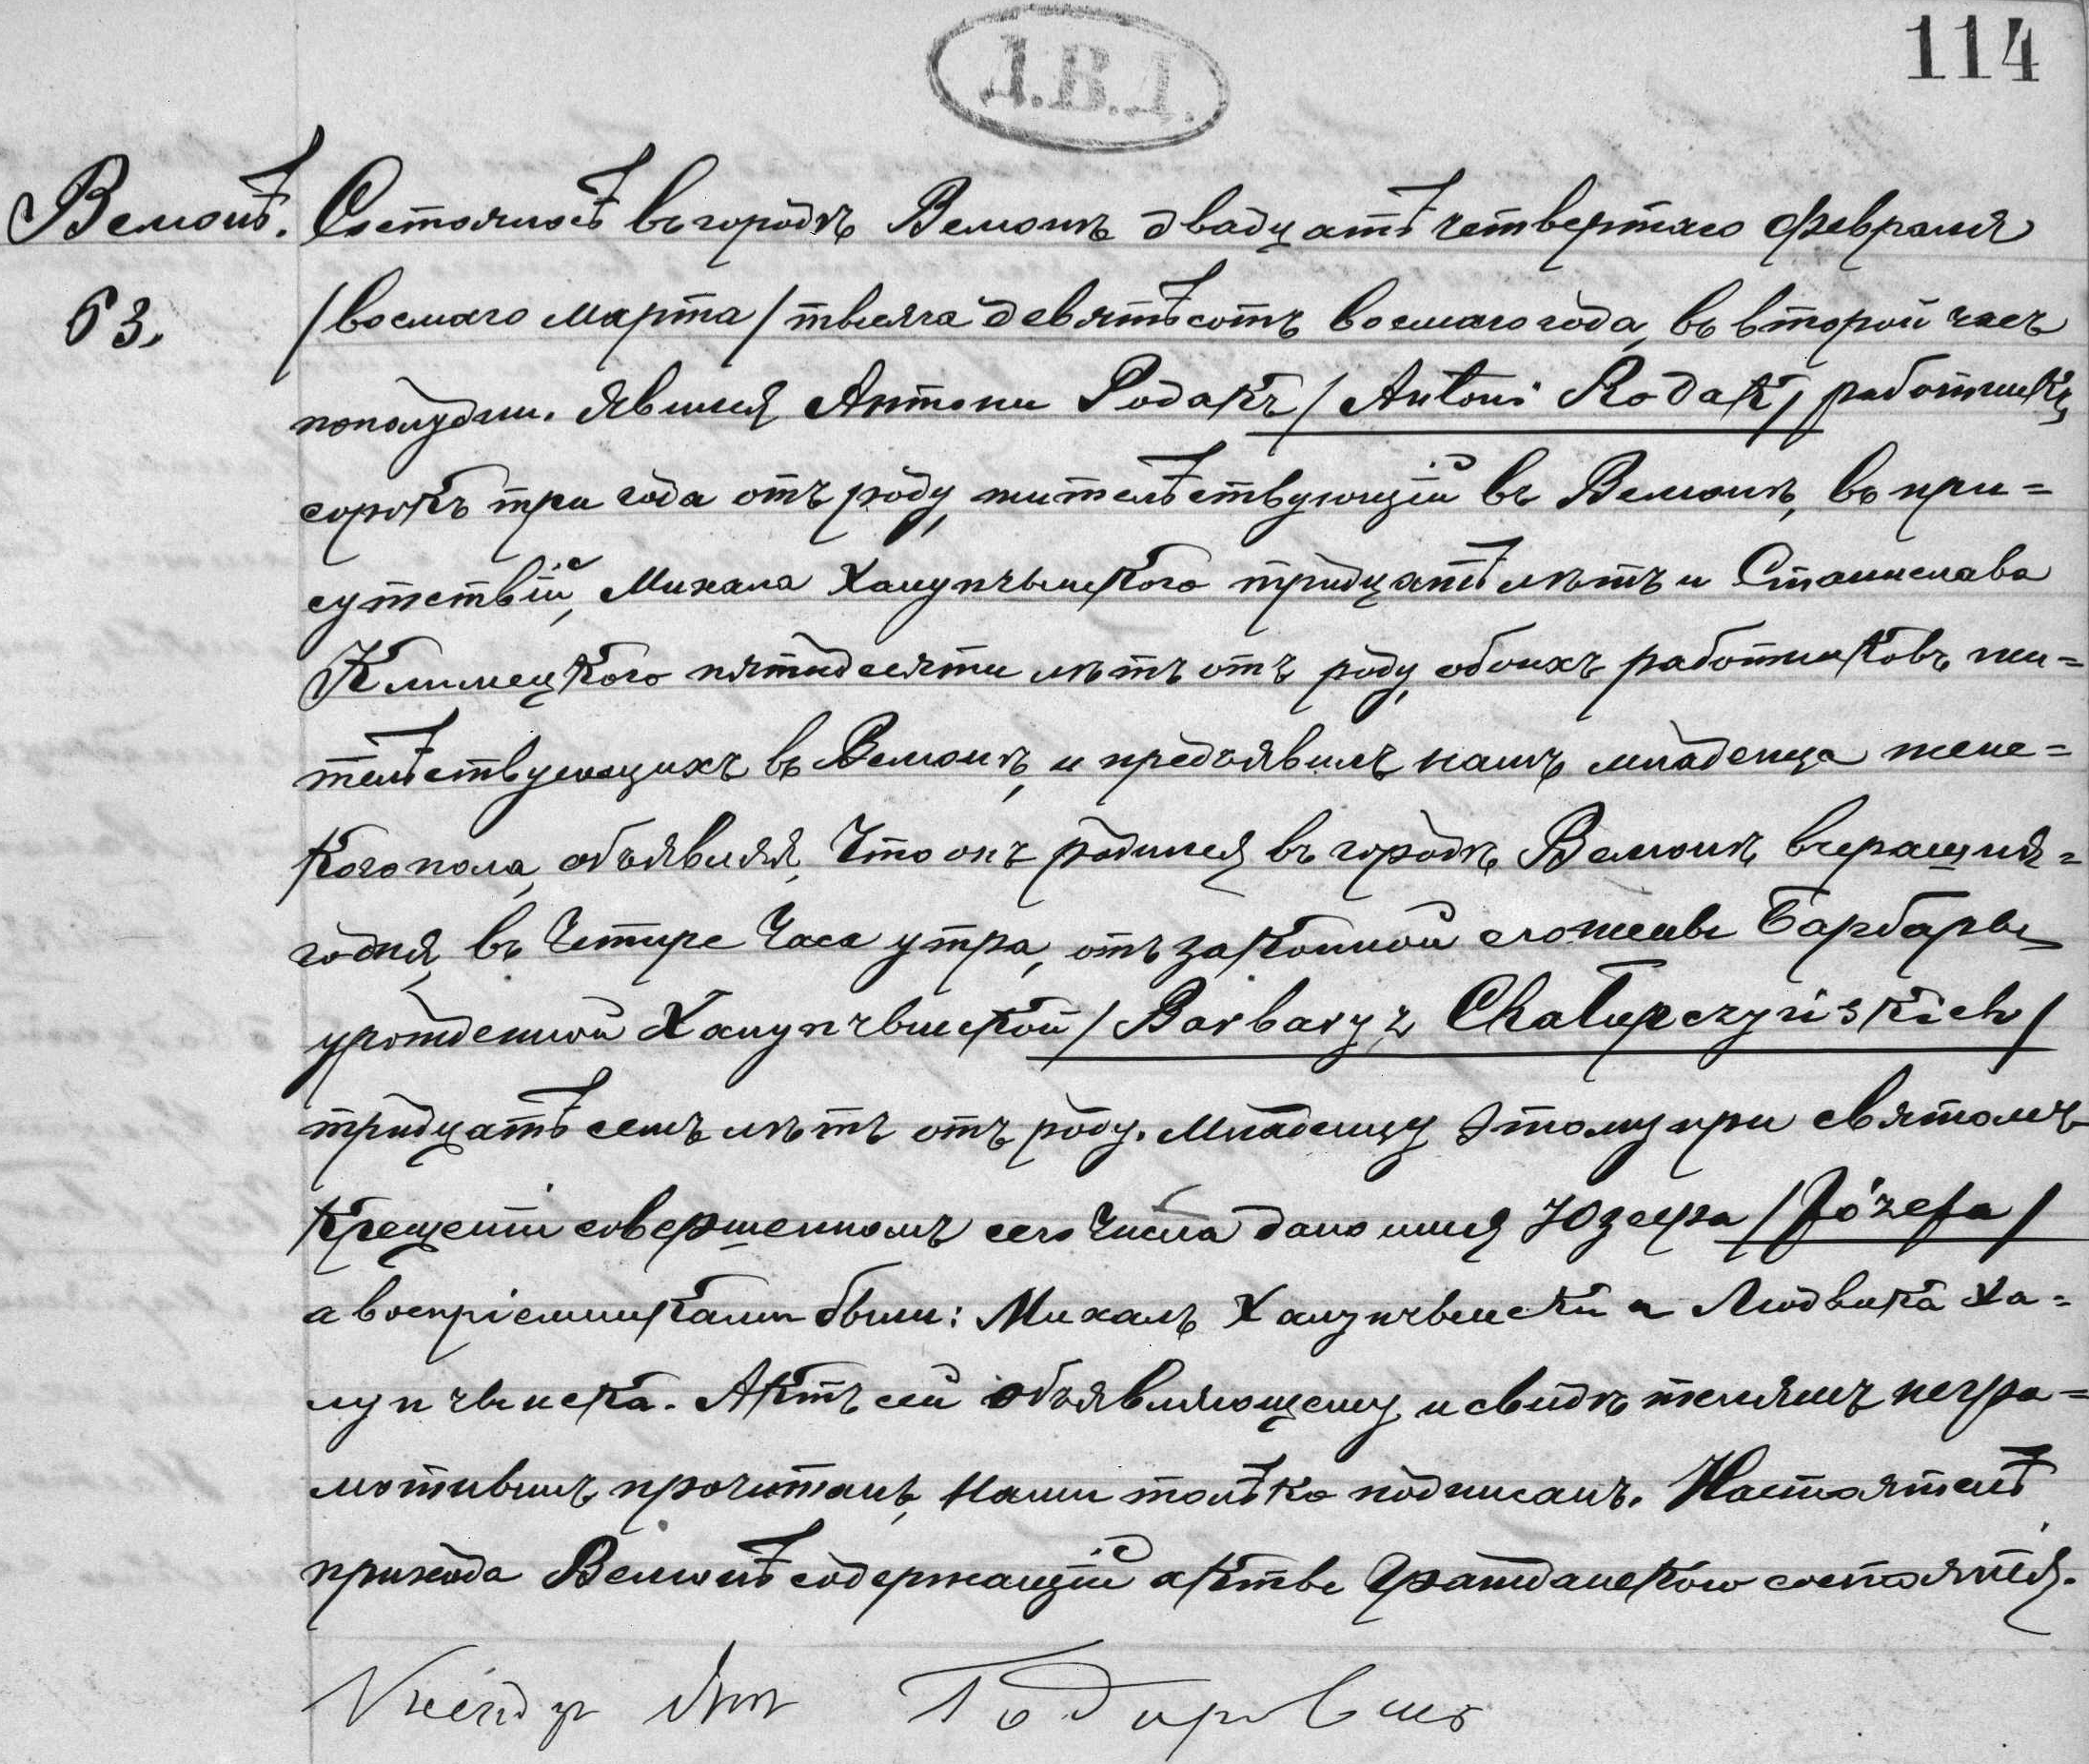 114
Д.В.Д.
Велюнь. Состоялось въ городѣ Велюнѣ двадцать четвертаго февраля
63. /восмаго марта/ тысяча девятьсотъ восмаго года, въ второй часъ
пополудни. Явился Антони Родакъ /Antoni Rodak/ работникъ,
сорокъ три года отъ роду, жительствующій въ Велюнѣ, въ при=
сутствіи, Михала Халупчынского тридцать лѣтъ и Станислава
Климецкого пятидесяти лѣтъ отъ роду, обоихъ работниковъ жи=
тельствующихъ въ Велюнѣ, и предъявилъ намъ младенца женс=
кого пола, объявляя, что онъ родился въ городѣ Велюнѣ вчерашня=
го дня, въ четире часа утра, отъ законной его жены Барбары
урожденной Халупчынской /Barbary z Chałupczyńskich/
тридцать семъ лѣтъ отъ роду. Младенцу этому при святомъ
крещеніи совершенномъ сего числа дано имя Юзефа /Józefa/
а воспріемниками были: Михалъ Халупчынски и Людвика Ха=
лупчынска. Актъ сей объявляющему и свидѣтелямъ негра=
мотнымъ прочитанъ, Нами только подписанъ. Настоятель
прихода Велюнь содержащій акты гражданского состоянія.